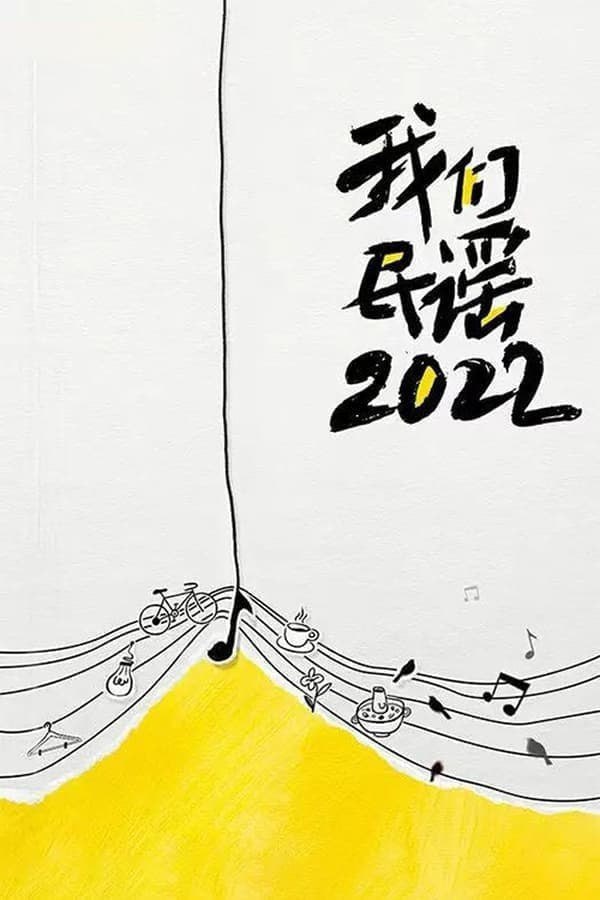 我们
民谣
2022